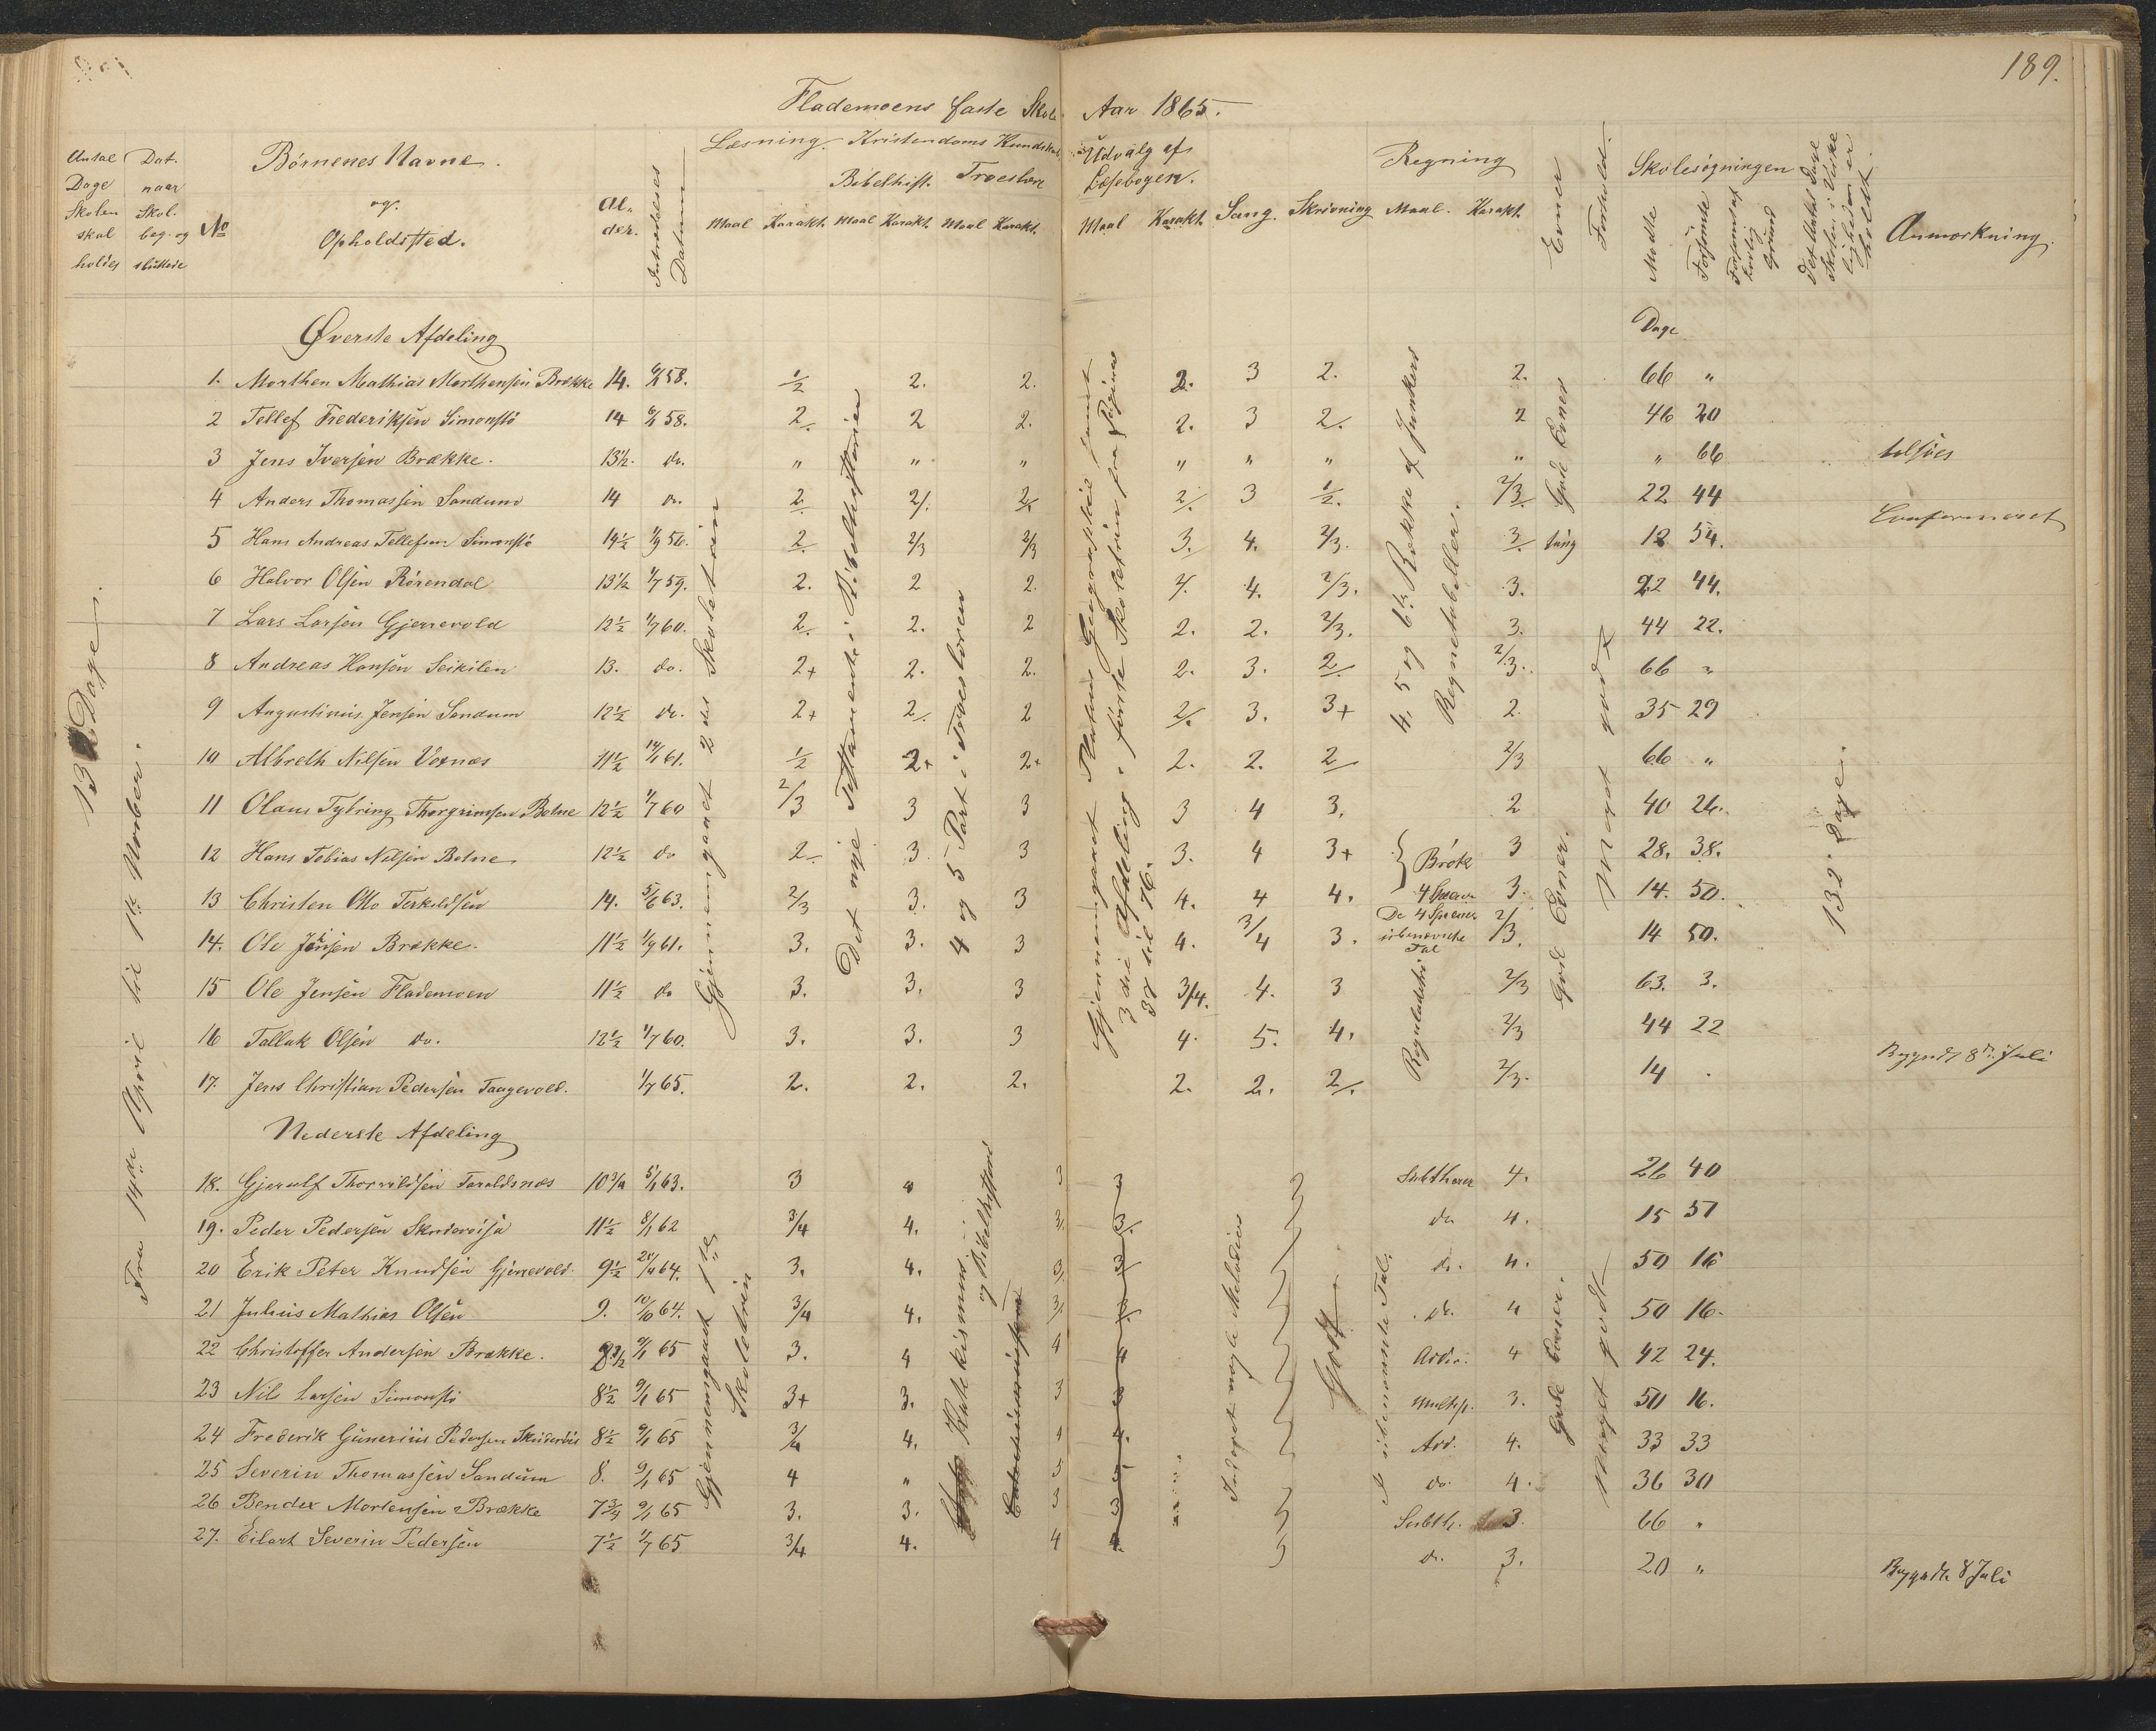 189.
Flademoens faste Skole Aar 1865.
Antal Dage Skolen skal holdes
Dat. naar Skol. beg. og sluttede
No
Børnenes Navne og Opholdsted.
Al- der.
Indtrædelses Datum
Læsning. Maal Karakt.
Kristendoms Kundskab
Bibelhist. Maal Karakt.
Troeslære Maal Karakt.
Udvalg af Læsebogen. Maal Karakt.
Sang.
Skrivning
Regning Maal. Karakt.
Evner
Forhold.
Skolesøgningen
Mødte
Forsømte
Anmærkning.
Øverste Afdeling
Dage
1. Morthen Mathias Morthensen Brække 14. 58. ½ 2. 2. 2. 3 2. 2. 66 "
2 Tellef Frederiksen Simonstø 14 58. 2 2 2. 2. 3 2. 2 46 20
3 Jens Iversen Brække. 13½. do. " " " " " " " " 66
4 Anders Thomassen Sandum 14 do. 2 2 2 2 3 ½. 2/3 22 44
5 Hans Andreas Tellefsen Simonstø 14½ 56. 2 2/3 2/3 3. 4. 2/3. 3 12 54.
6 Halvor Olsen Rørendal 13½ 1/7 59. 2. 2 2. 2. 4. 2/3. 3. 22 44.
7 Lars Larsen Gjerrevold 12½ 1/7 60. 2. 2. 2 2. 2. 2/3. 3. 44 22.
8 Andreas Hansen Seikilen 13. do. 2+ 2. 2. 2. 3. 2 2/3. 66 "
9 Augustinus Jensen Sandum 12½ do. 2+ 2 2 2. 3. 3+ 2. 35 29
10 Albreth Nilsen Voxnæs 11½ 61. ½ 2+ 2+ 2. 2. 2 2/3 66 "
11 Olaus Tybring Thorgrimsen Botne 12½ 1/7 60 2/3 3 3 3 4 3. 2 40 26.
12 Hans Tobias Nilsen Botne 12½ do 2 3 3 3. 4 3+ Brøk 3 28. 38.
13 Christen Otto Terkeldsen 14. 5/6 63. 2/3 3. 3 4. 4 4. 3. 14. 50.
14. Ole Jensen Brække. 11½ 1/9 61. 3. 3. 3 4. 3/4 3. 2/3. 14 50.
15 Ole Jensen Flademoen 11½ do 3. 3. 3 3/4. 4. 3 2/3 63. 3.
16 Tallak Olsen do. 12½ 1/7 60. 3. 3. 3 4. 5. 4. 2/3 44 22
17. Jens Christian Pedersen Taagevold. 1/7 65. 2. 2. 2. 2. 2. 2. 2/3. 14 . Begyndt 8de Juli
Confirmeret
13 Dage.
Fra 19de April til 1te November.
Gjennemgaaet 2det Skoletrin
Det nye Testamente i Bibelhistorien
4 og 5 Part i Troeslæren
Gjennemgaaet
3die Afdeling i første Skoletrin fra Pagina
37 til 76.
4. 5 og 6te Række af Junkers
Regnetabeller.
Reguladetri
Gode Evner
Gode Evner.
Meget godt
132. Dage.
Nederste Afdeling
18. Gjerulf Thorvildsen Teraldsnæs 63. 3 4 3 3 Subther 4. 26 40
19. Peder Pedersen 11½ 62 3/4 4. 3. 3. do 4. 15 51
20 Erik Peter Knudsen Gjerrevold. 9½ 64. 3. 4. 3. 3 do. 4. 50 16
21 Julius Mathias Olsen 9. 10/10 64. 3/4 4. 3. 3. do. 4 50 16.
22 Christoffer Andersen Brække. 65 3. 4 4 4 4 42 24.
23 Nils Larsen Simonstø 8½ 9/1 65 3+ 3. 3 3 Multip. 3. 50 16.
24 Frederik Gunerius Pedersen 8½ 9/1 65 3/4 4. 4 4. Add. 4. 33 33
25 Severin Thomassen Sandum 8. 9/1 65 4 " 5 5 do. 4. 36 30
26 Bendex Mortensen Brække 7¾ 9/1 65 3. 3. 3 3 Subth. 3. 66 "
27. Eilert Severin Pedersen 7½ 1/7 65 3/4 4. 4 4. do. 3. 20 " Begyndte 8 Juli
Gjennemgaaet 1te
Skoletrin
Katekismus
og Bibelhistorie
Indøvet nogle Melodier
Godt
Gode Evner.
Meget godt